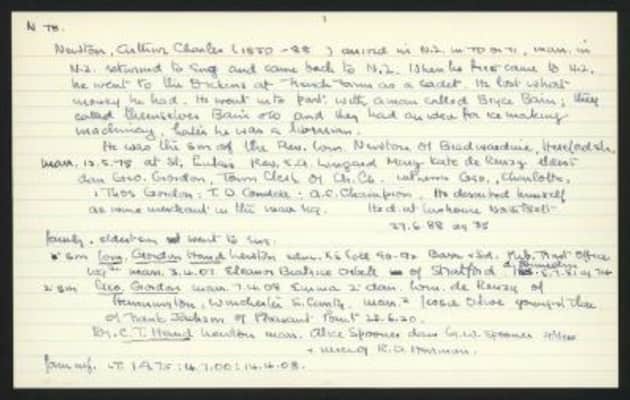 N 78.
Newton, Arthur Charles (1850 - 88 ) arrived in N.Z. in 70 or 71, marr. in
N.Z. returned to Eng and came back to N.Z. When he first came to N.Z.
he went to the Dickens at French Farm as a cadet. He lost what
money he had. He went into part. with a man called Bryce Bain; they
called themselves Bain & Co and they had an idea for ice making
machinery, later he was a librarian.
He was the son of the Rev. Wm. Newton of Bredwardine, Herefordsh.
marr. 12.5.75 at St. Lukes Rev. E.A. Lingard Mary Kate de Renzy eldest
dau Geo. Gordon, Town Clerk of Ch.Ch. witness Geo., Charlotte,
: Thos Gordon: T.D. Condell: A.C. Champion. He described himself
as wine merchant in the marr reg. He d. at
27.6.88 ag 38
family. eldest son went to Eng.
son Wm. Gordon Hand Newton educ. 90-92 Barr & Sol. Pub. Trust Office
Wgtn marr. 3.4.07 Eleanor Beatrice Orbell of Stratford
2 son Geo. Gordon marr. 7.4.08 Emma 2 dau. Wm. de Renzy of
Winchester S. Canty. marr. 2 Jessie Olive youngest dau
of Frank Jackson of Pleasant Point 28.6.20.
Dr. C.T. Hand Newton marr. Alice Spooner dau G.W. Spooner
& niece of R.D. Harman.
fam inf. LT 1975: 4.7.00: 14.4.08.